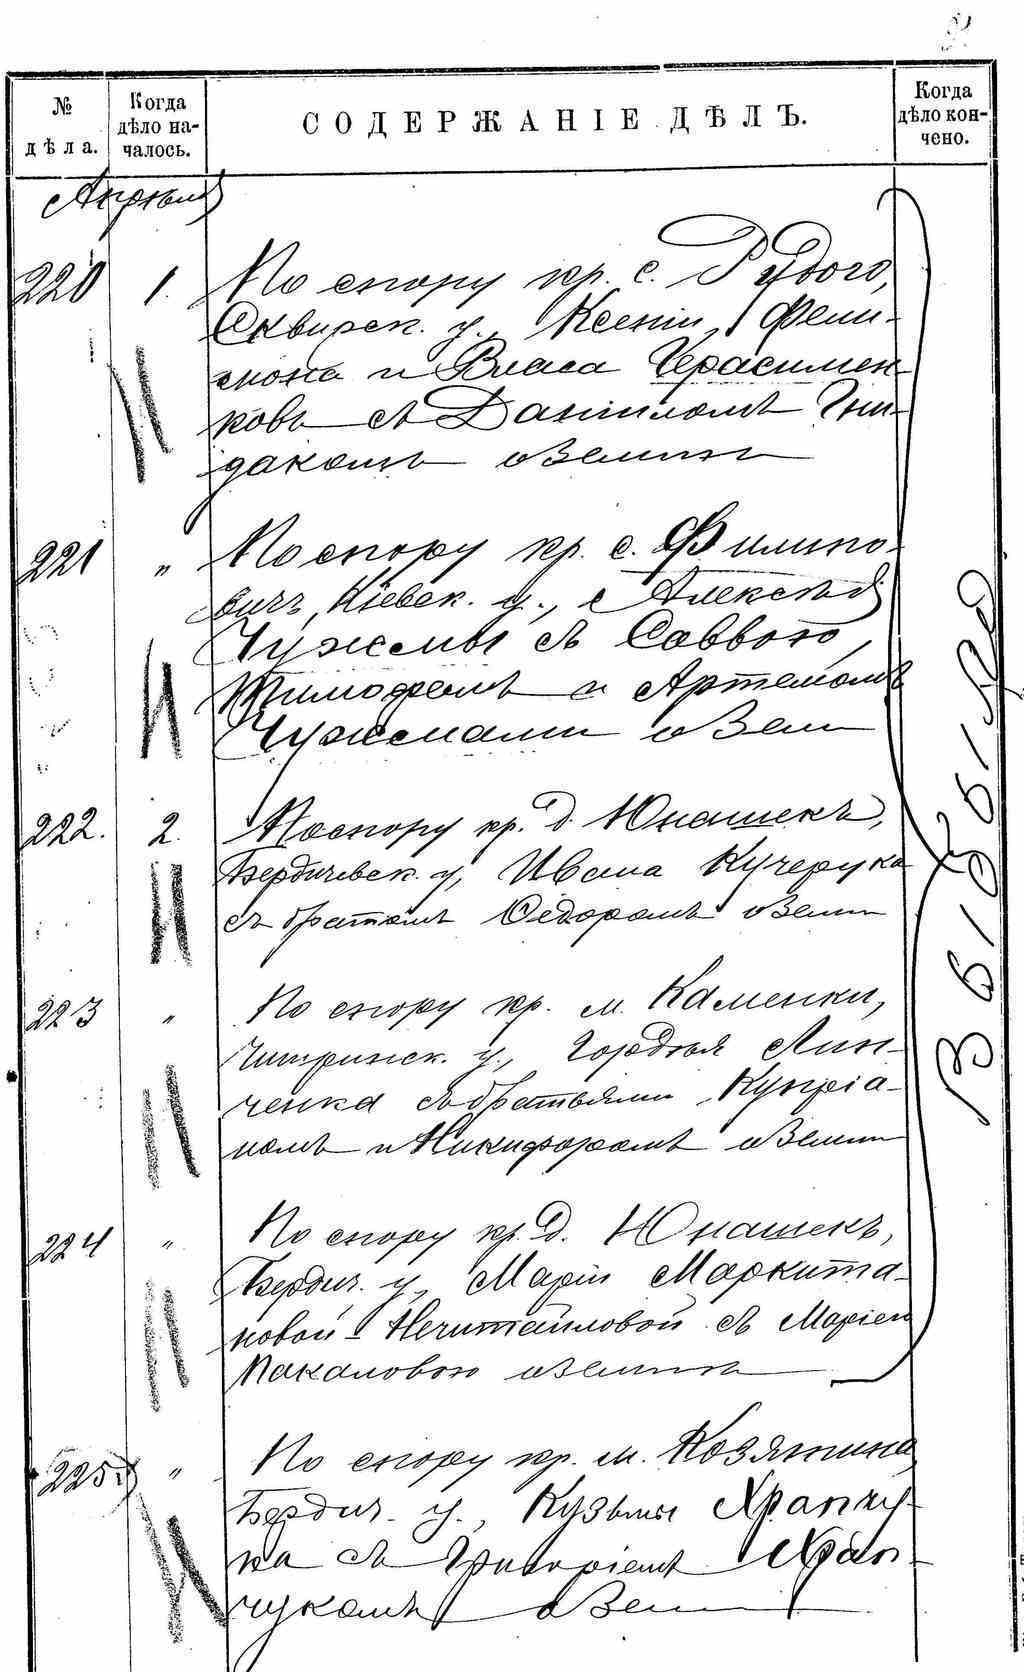 № дѣла.
Когда дѣло на-
чалось.
СОДЕРЖАНІЕ ДѢЛЪ.
Когда
дѣло кон-
чено.
Апрѣля
220 1. По спору кр. с. Рудого,
Сквирск. у., Ксеніи, Фили-
мона и Власа Герасимен-
ковъ съ Даніиломъ Гни-
дакомъ о землѣ
221 " По спору кр. с. Филипо-
вичъ, Кіевск. у., Алексѣя
Чужмы съ Саввою,
Тимофеемъ и Артемомъ
Чужмами о земли
222. 2. По спору кр. д. Юнашекъ,
Бердичевск. у., Ивана Кучерука
съ братомъ Ѳедоромъ о земли
223 " По спору кр. м. Каменки,
Чигринск. у., Гордѣя Лин-
ченка съ братьями Купріа-
номъ и Никифоромъ о земли
224 " По спору кр. д. Юнашекъ,
Бердич. у., Маріи Маркита-
новой-Нечитайловой съ Маріею
Макаловою о землѣ
225 " По спору кр. м. Козятина,
Бердич. у., Кузьмы Храпчу-
ка съ Григоріемъ Храп-
чукомъ о земл